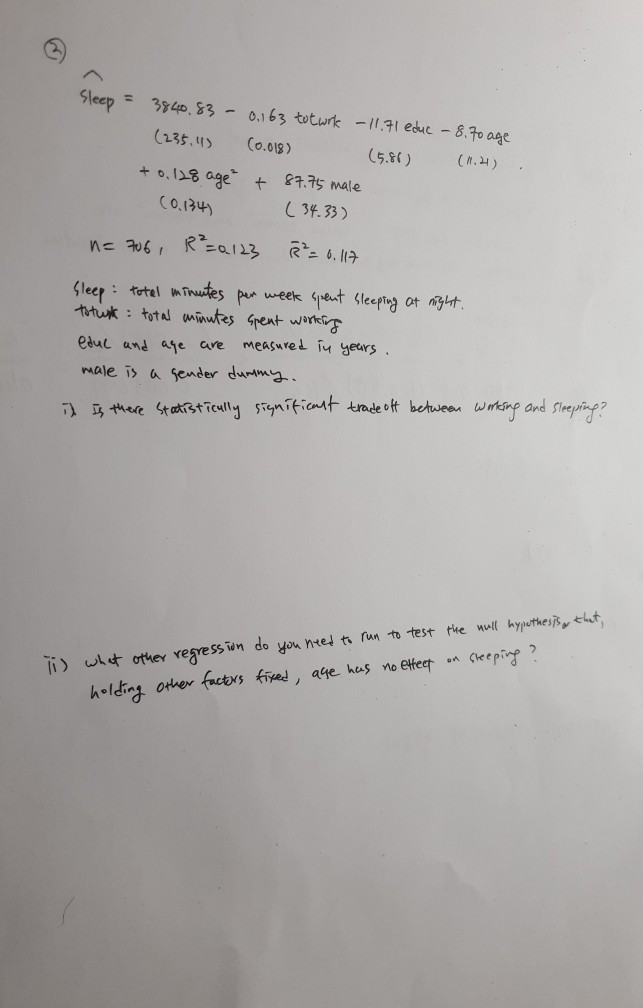 ②
Ŝleep = 3840.83 - 0.163 totwrk - 11.71 educ - 8.70 age
(235.11) (0.018) (5.86) (11.21) .
+ 0.128 age² + 87.75 male
(0.134) (34.33)
n = 706, R² = 0.123 R̄² = 0.117
Sleep : total minutes per week spent sleeping at night.
totwrk : total minutes spent working
educ and age are measured in years.
male is a gender dummy.
i) Is there statistically significant tradeoff between working and sleeping?
ii) what other regression do you need to run to test the null hypothesis that,
holding other factors fixed, age has no effect on sleeping?